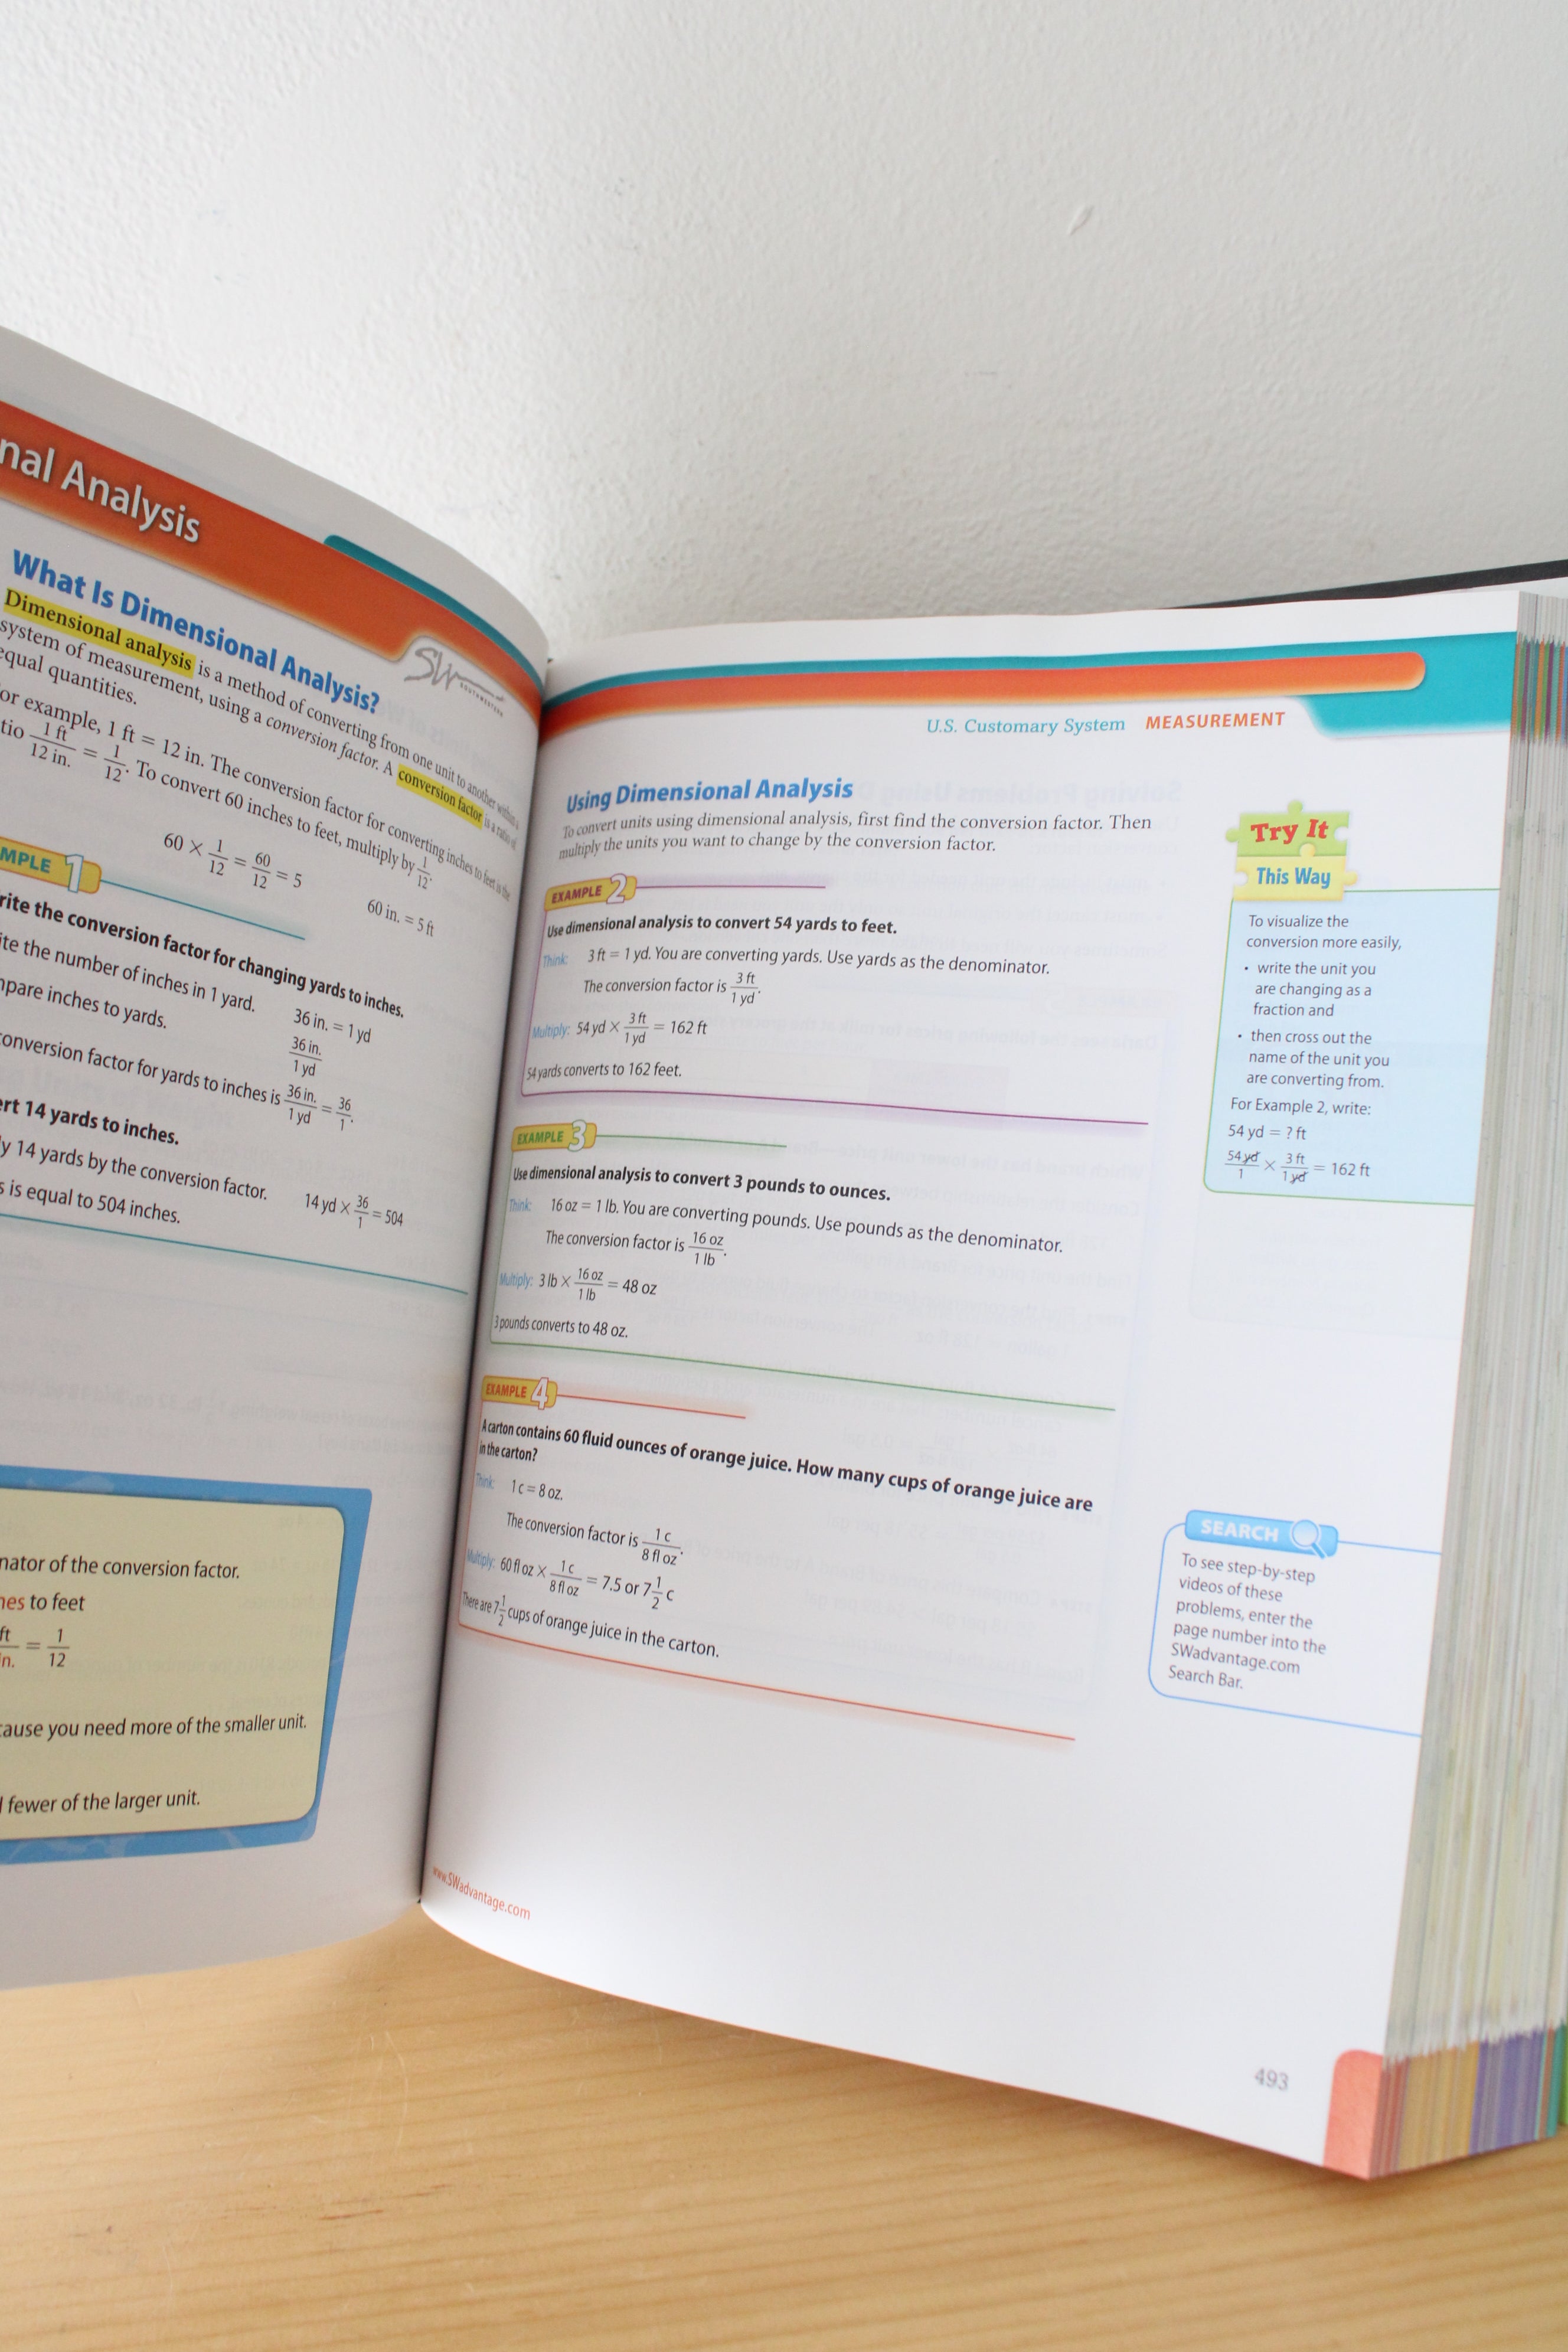 nal Analysis
What Is Dimensional Analysis?
Dimensional analysis is a method of converting from one unit to another within a
system of measurement, using a conversion factor. A conversion factor is a ratio of
equal quantities.
or example, 1 ft = 12 in. The conversion factor for converting inches to feet is the
tio 1 ft/12 in. = 1/12. To convert 60 inches to feet, multiply by 1/12.
60 × 1/12 = 60/12 = 5
60 in. = 5 ft
SW
SOUTHWESTERN
MPLE 1
rite the conversion factor for changing yards to inches.
ite the number of inches in 1 yard. 36 in. = 1 yd
mpare inches to yards. 36 in./1 yd
onversion factor for yards to inches is 36 in./1 yd = 36/1.
ert 14 yards to inches.
y 14 yards by the conversion factor. 14 yd × 36/1 = 504
s is equal to 504 inches.
nator of the conversion factor.
hes to feet
ft/in. = 1/12
cause you need more of the smaller unit.
fewer of the larger unit.
U.S. Customary System MEASUREMENT
Using Dimensional Analysis
To convert units using dimensional analysis, first find the conversion factor. Then
multiply the units you want to change by the conversion factor.
EXAMPLE 2
Use dimensional analysis to convert 54 yards to feet.
Think: 3 ft = 1 yd. You are converting yards. Use yards as the denominator.
The conversion factor is 3 ft/1 yd.
Multiply: 54 yd × 3 ft/1 yd = 162 ft
54 yards converts to 162 feet.
EXAMPLE 3
Use dimensional analysis to convert 3 pounds to ounces.
Think: 16 oz = 1 lb. You are converting pounds. Use pounds as the denominator.
The conversion factor is 16 oz/1 lb.
Multiply: 3 lb × 16 oz/1 lb = 48 oz
3 pounds converts to 48 oz.
EXAMPLE 4
A carton contains 60 fluid ounces of orange juice. How many cups of orange juice are
in the carton?
Think: 1 c = 8 oz.
The conversion factor is 1 c/8 fl oz.
Multiply: 60 fl oz × 1 c/8 fl oz = 7.5 or 7 1/2 c
There are 7 1/2 cups of orange juice in the carton.
www.SWadvantage.com
Try It
This Way
To visualize the
conversion more easily,
• write the unit you
are changing as a
fraction and
• then cross out the
name of the unit you
are converting from.
For Example 2, write:
54 yd = ? ft
54 yd/1 × 3 ft/1 yd = 162 ft
SEARCH
To see step-by-step
videos of these
problems, enter the
page number into the
SWadvantage.com
Search Bar.
493